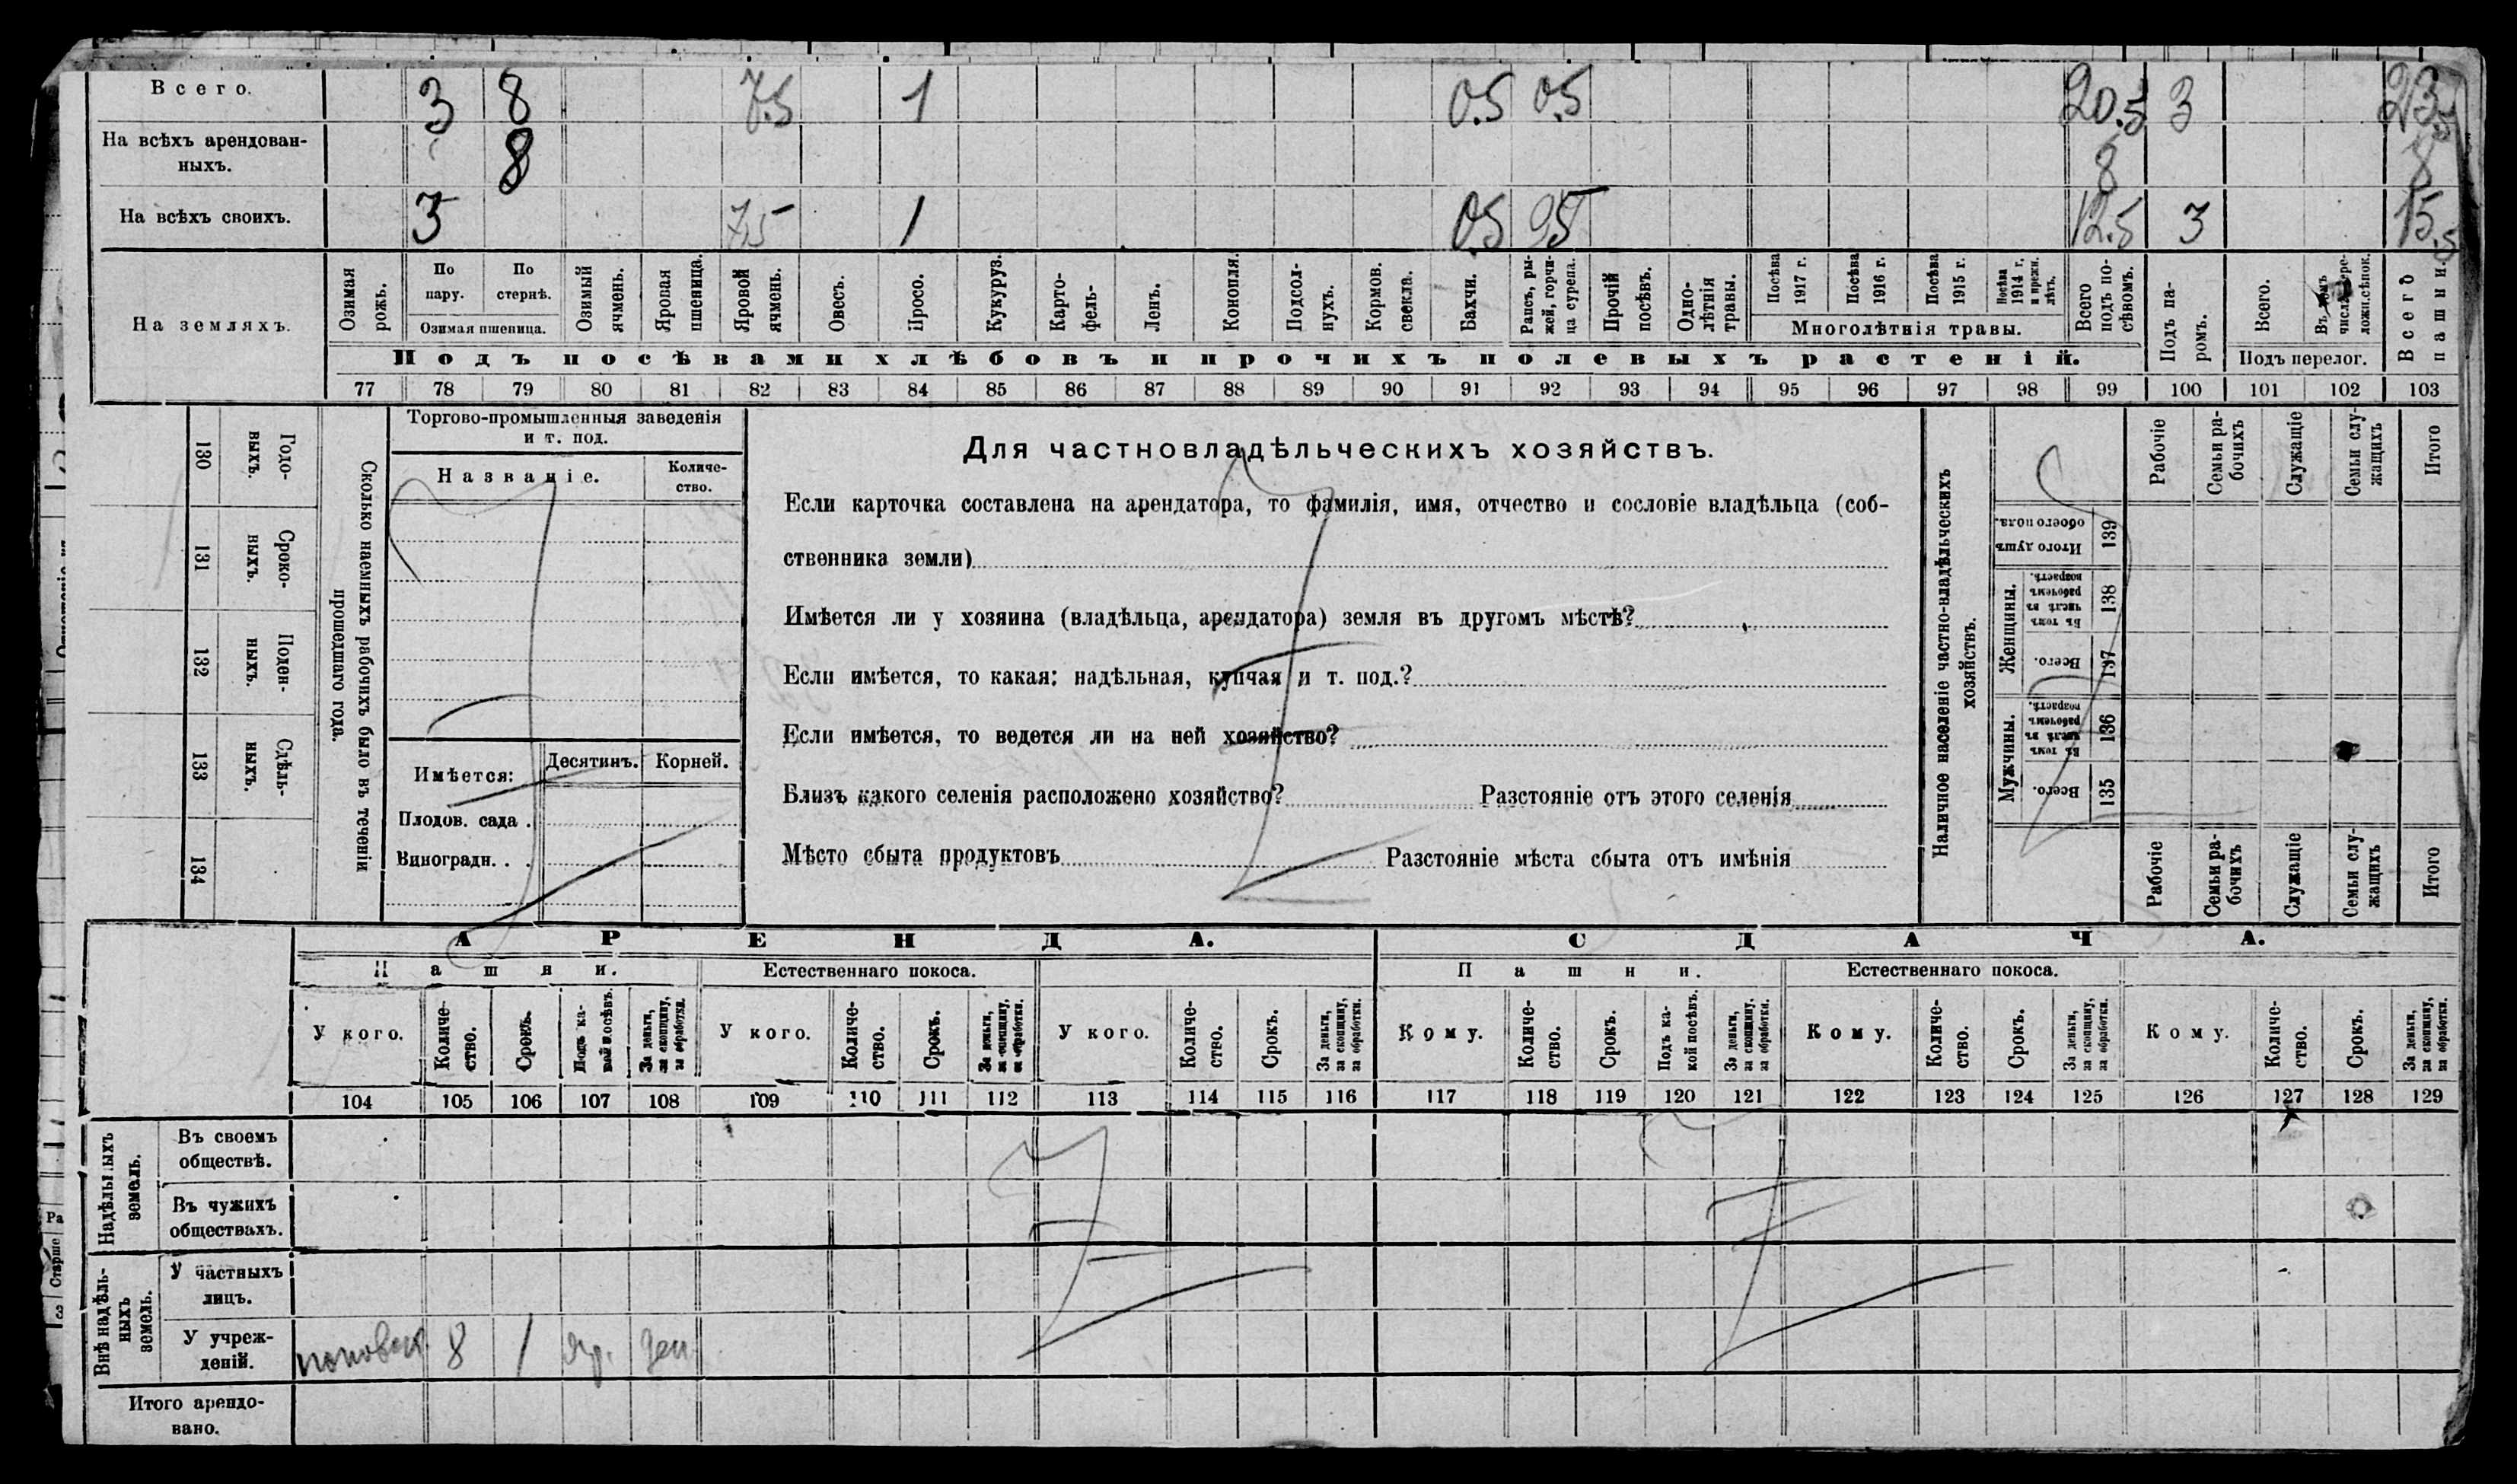 Всего. 3 8 7.5 1 0.5 0.5 20.5 3 23.5
На всѣхъ арендован-
ныхъ. 8 8 8
На всѣхъ своихъ. 3 7.5 1 0.5 0.5 12.5 3 15.5
На земляхъ.
Озимая рожь.
По пару.
По стернѣ.
Озимая пшеница.
Озимый ячмень.
Яровая пшеница.
Яровой ячмень.
Овесъ.
Просо.
Кукуруз.
Карто-
фель.
Ленъ.
Конопля.
Подсол-
нухъ.
Кормов.
свекла.
Бахчи.
Рапсъ, ры-
жей, горчи-
ца сурепа.
Прочій посѣвъ.
Одно-
лѣтнія
травы.
Посѣва 1917 г.
Посѣва 1916 г.
Посѣва 1915 г.
Посѣва 1914 г. и прежн. лѣтъ.
Многолѣтнія травы.
Всего подъ по-
сѣвомъ.
Подъ посѣвами хлѣбовъ и прочихъ полевыхъ растеній.
Подъ па-
ромъ.
Всего.
Въ томъ
числѣ пере-
ложн. сѣнок.
Подъ перелог.
Всего пашни.
77 78 79 80 81 82 83 84 85 86 87 88 89 90 91 92 93 94 95 96 97 98 99 100 101 102 103
130 Годо-
выхъ.
131 Сроко-
ныхъ.
132 Поден-
ныхъ.
133 Сдѣль-
ныхъ.
134
Сколько наемныхъ рабочихъ было въ теченіи
прошедшаго года.
Торгово-промышленныя заведенія
и т. под.
Названіе.
Количе-
ство.
Имѣется:
Десятинъ. Корней.
Плодов. сада .
Виноградн. . .
Для частновладѣльческихъ хозяйствъ.
Если карточка составлена на арендатора, то фамилія, имя, отчество и сословіе владѣльца (соб-
ственника земли)
Имѣется ли у хозяина (владѣльца, арендатора) земля въ другомъ мѣстѣ?
Если имѣется, то какая: надѣльная, купчая и т. под.?
Если имѣется, то ведется ли на ней хозяйство?
Близъ какого селенія расположено хозяйство? Разстояніе отъ этого селенія
Мѣсто сбыта продуктовъ Разстояніе мѣста сбыта отъ имѣнія
Наличное населеніе частно-владѣльческихъ
хозяйствъ.
Итого душъ
обоего пола. 139
Женщины.
Въ томъ
числѣ въ
рабочемъ
возрастѣ. 138
Всего. 137
Мужчины.
Въ томъ
числѣ въ
рабочемъ
возрастѣ. 136
Всего. 135
Рабочіе
Семьи ра-
бочихъ
Служащіе
Семьи слу-
жащихъ
Итого
Рабочіе
Семьи ра-
бочихъ
Служащіе
Семьи слу-
жащихъ
Итого
АРЕНДА. СДАЧА.
Пашни. Естественнаго покоса. Пашни. Естественнаго покоса.
У кого.
Количе-
ство.
Срокъ.
Подъ ка-
кой посѣвъ.
За деньги,
за скопщину,
за обработки.
У кого.
Количе-
ство.
Срокъ.
За деньги,
за скопщину,
за обработки.
У кого.
Количе-
ство.
Срокъ.
За деньги,
за скопщину,
за обработки.
Кому.
Количе-
ство.
Срокъ.
Подъ ка-
кой посѣвъ.
За деньги,
за скопщину,
за обработки.
Кому.
Количе-
ство.
Срокъ.
За деньги,
за скопщину,
за обработки.
Кому.
Количе-
ство.
Срокъ.
За деньги,
за скопщину,
за обработки.
104 105 106 107 108 109 110 111 112 113 114 115 116 117 118 119 120 121 122 123 124 125 126 127 128 129
Надѣльныхъ
земель.
Въ своемъ
обществѣ.
Въ чужихъ
обществахъ.
Внѣ надѣль-
ныхъ
земель.
У частныхъ
лицъ.
У учреж-
деній. 8 1 ден
Итого арендо-
вано.
Ра
Старше